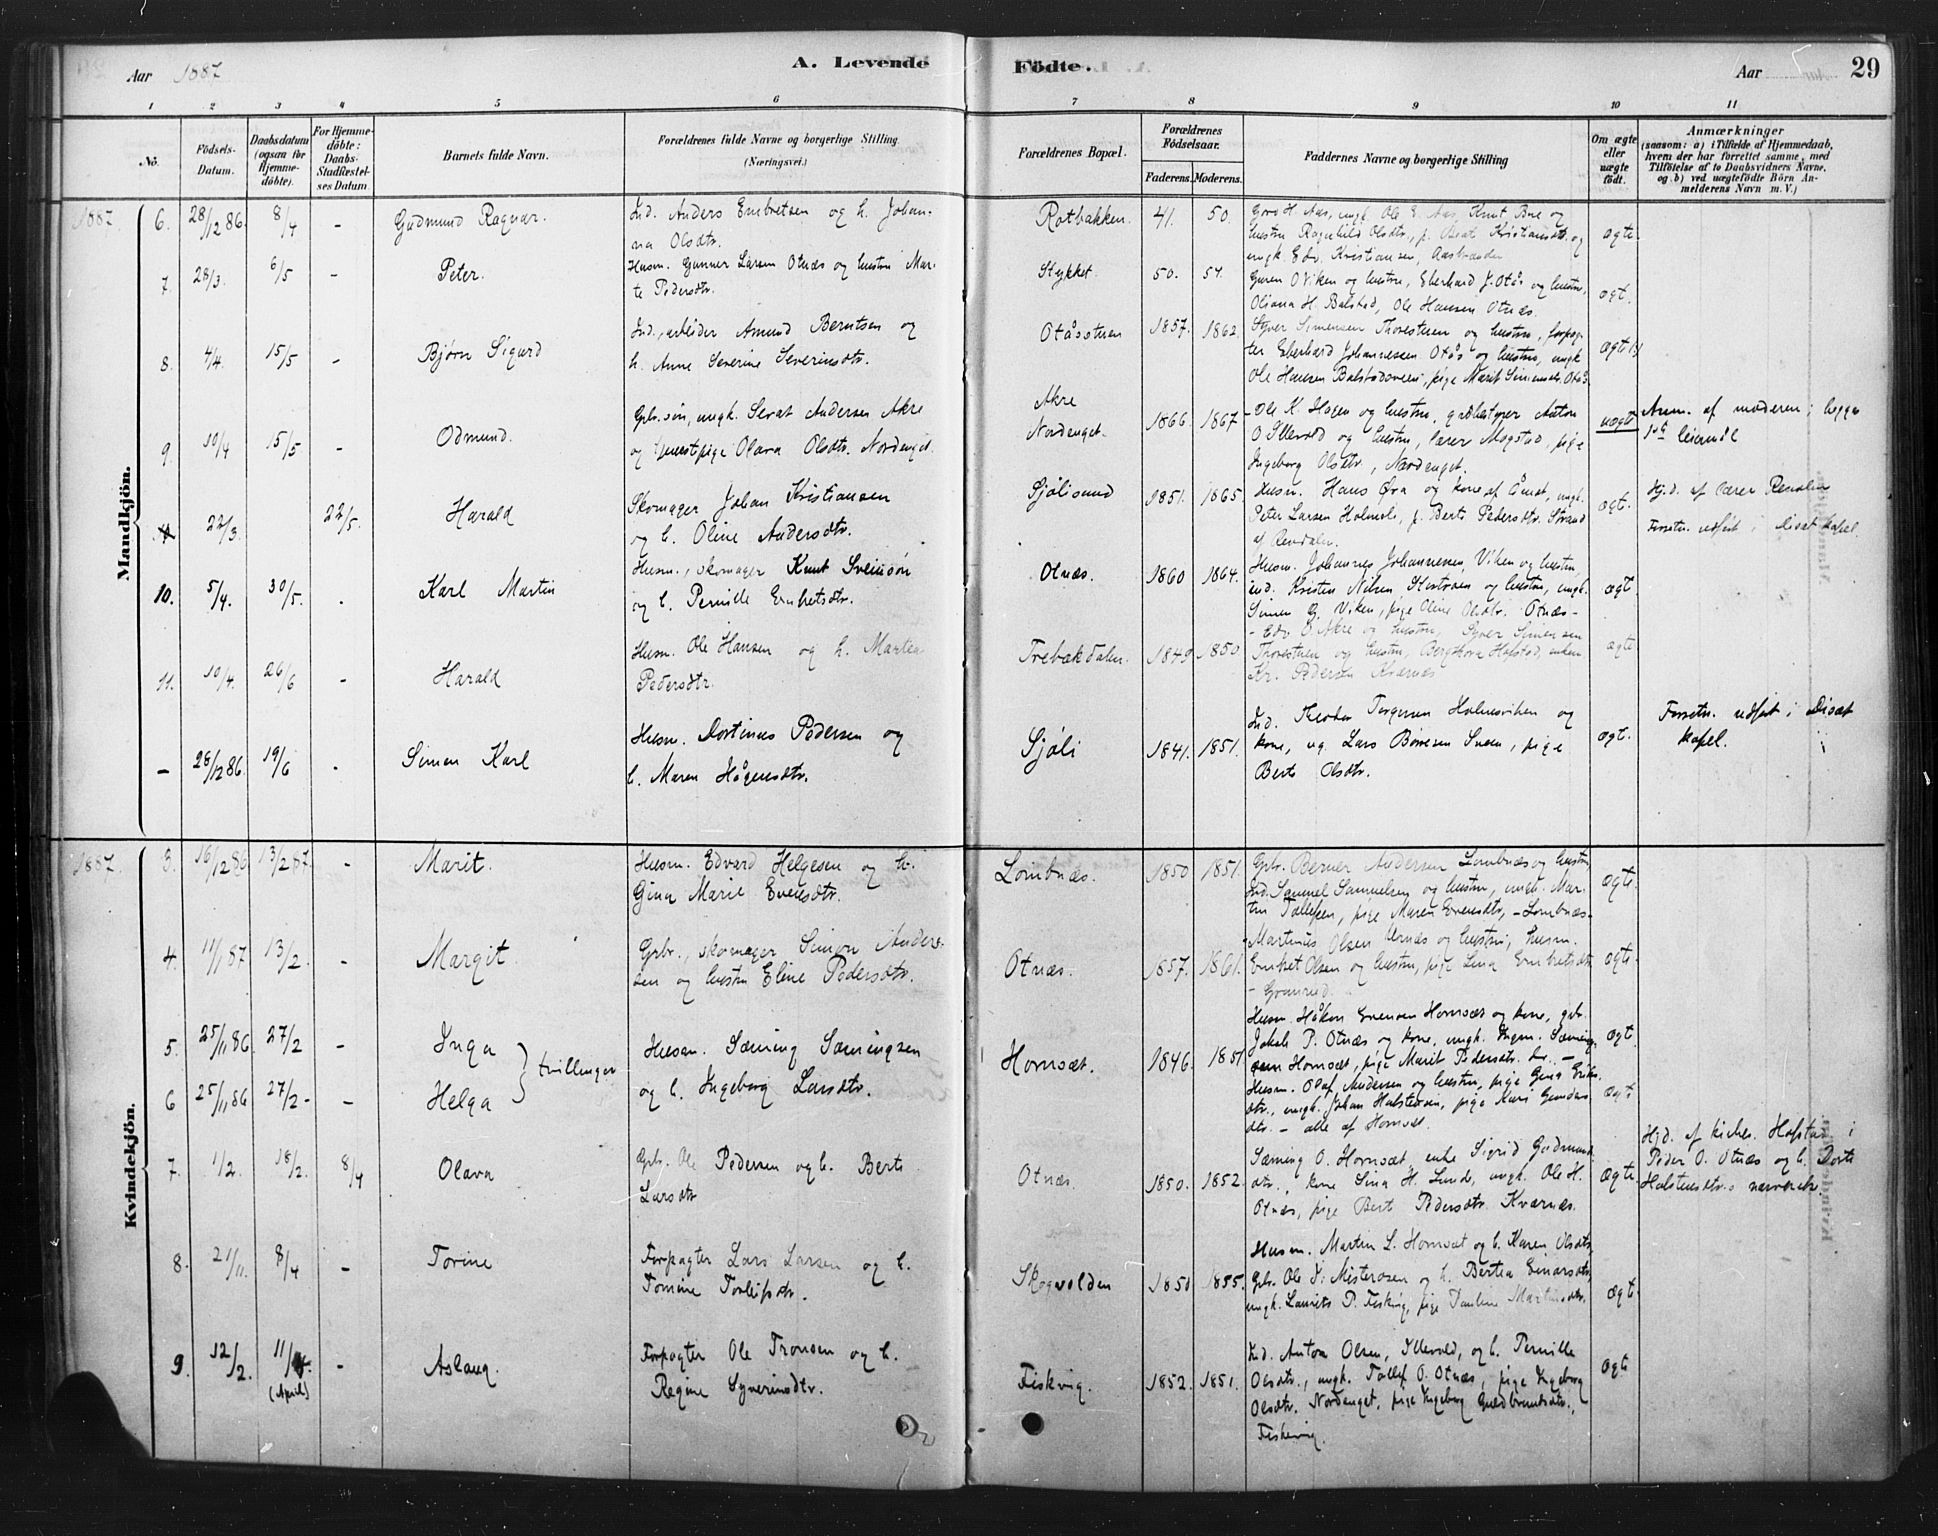 Aar 1887
A. Levende Födte.
Aar
29
1 2 3 4 5 6 7 8 9 10 11
No.
Födsels-Datum.
Daabsdatum (ogsaa for Hjemmedöbte).
For Hjemmedöbte: Daabs-Stadfæstelses Datum
Barnets fulde Navn.
Forældrenes fulde Navne og borgerlige Stilling (Næringsvei.)
Forældrenes Bopæl.
Forældrenes Födselsaar.
Faderens. Moderens.
Faddernes Navne og borgerlige Stilling
Om ægte eller uægte födt.
Anmærkninger
(saasom: a) i Tilfælde af Hjemmedaab,
hvem der har forrettet samme, med
Tilföielse af to Daabsvidners Navne,
og b) ved uægtefödte Börn Anmelderens Navn m. V.)
Mandkjön.
1887. 6. 28/12 86. 8/4 - Gudmund Ragnar.
Ind. Anders Embretsen og h. Johanna Olsdtr.
Rotbakken. 41. 50.
ægte.
7. 28/3. 6/5 - Peter.
Husm. Gunner Larsen Otnæs og hustru Marte Pedersdtr.
Stykket. 50. 54.
Oliana H. Balstad, Ole Hansen Otnæs.
ægt.
8. 4/4. 15/5 - Bjørn Sigurd
Ind., arbeider Amund Berntsen og
h. Anne Severine Severinsdtr.
Otåsstuen 1857. 1862.
Syver Simensen Thorestuen og hustru, forpagter Eberhard Johannessen Otås og hustru, ungk.
ægte
9. 10/4 15/5 - Odmund.
Gbr.søn, ungk. Sivat Andersen Akre
og tjenestpige Olava Olsdtr. Nordenget.
Akre
Nordenget. 1866. 1867
Ole K. Hagen og hustru,
O Illevold og hustru, lærer Mogstad, pige
Ingeborg Olsdtr., Nordenget.
uægt
Anm. af moderen; begges
1ste leiermål
22/3. 22/5. Harald
Skomager Johan Kristiansen
og h. Oline Andersdtr.
Sjølisund 1851. 1865.
Peter Larsen Holmsli, p. Berte Pedersdtr. Strand
af Rendalen.
ægt.
Hjd. af lærer Rendalen
Forretn. udført i Disæt kapel.
10. 5/4. 30/5. - Karl Martin
Husm., skomager Knut Sveinsøn
og h. Pernille Embretsdtr.
Otnæs. 1860 1864.
Husm. Johannes Johannessen, Viken og hustru
Simen G. Viken, pige Oline Olsdtr. Otnæs-
ægt.
11. 10/4. 26/6 - Harald
Husm. Ole Hansen og h. Martea
Pedersdtr.
Trebækdalen. 1849 1850.
- Edv. O. Akre og hustru, Syver Simensen
Thorestuen og hustru, Bergthora Hofstad, enken
Kr. Pedersen Kværnæs
ægte
- 28/12 86. 19/6 - Simen Karl
Husm. Mortinus Pedersen og
h. Maren Hågensdtr.
Sjøli 1841. 1851.
Ind. Theodor Torgersen Holmesviken og
kone, ug. Lars Børresen Sneen, pige
Berte Olsdtr.
ægt.
Forretn. udført i Disæt
kapel.
Kvindekjön.
1887. 3. 16/12 86 13/2 87. - Marit.
Husm. Edvard Helgesen og h.
Gina Marie Evensdtr.
Lombnæs. 1850 1851.
Gbr. Berner Andersen Lombnæs og hustru,
Ind. Samuel Samuelsen og hustru, ungk. Martin Tollefsen, pige Maren Evensdtr, - Lombnæs-
ægte.
4. 11/1 87 13/2. - Margit.
Gbr., skomager Simon Andersen og hustru Eline Pedersdtr.
Otnæs. 1857. 1861.
Martinus Olsen Urnæs og hustru, husm.
Embret Olsen og hustru, pige Lina Embretsdtr
- Granrud.
ægte.
5. 25/11 86. 27/2 - Inga
6 25/11 86 27/2 - - Helga
} tvillinger
Husm. Sæming Sæmingsen
og h. Ingeborg Larsdtr.
Hornsæt. 1846. 1851
Husm. Håkon Evensen Hornsæt og kone, gbr.
Jakob P. Otnæs og kone, ungk. Ingm. Sæmingsen Hornsæt, pige Marit Pedersdtr. -
Husm. Olaf Andersen og hustru, pige Gina Eriksdtr., ungk. Johan Halstensen, pige Kari Gundersdtr. - alle af Hornset.
ægt.
ægt.
7. 1/2. 18/2. 8/4 Olava
Gbr. Ole Pedersen og h. Berte
Larsdtr
Otnæs. 1850. 1852.
Sæming O. Hornsæt, enke Sigrid Gudmundsdtr., kone Lina H. Lunde, ungk. Ole H.
Otnæs, pige Berit Pedersdtr. Kværnæs.
ægte
Hjd. af kirkes. Hofstad i
Peder O. Otnæs og h. Dorte
Halstensdtrs nærværelse.
8. 21/11. 8/4 - Torine
Forpagter Lars Larsen og h.
Tomine Torleifsdtr.
Skogvolden 1850 1855.
Husm. Martin L. Hornsæt og h. Karen Olsdtr,
Gbr. Ole J. Misterosen og h. Bertea Einarsdtr,
ungk. Laurits P. Fiskvig, pige Pauline Martinsdtr.
ægte.
9. 12/2. 11/4. (April) - Aslaug.
Forpagter Ole Tronsen og h.
Regine Syverinsdtr.
Fiskvig. 1852. 1851.
Ind. Anton Olsen, Illevold, og h. Pernille
Olsdtr., ungk. Tollef O. Otnæs, pige Ingeborg
Olsdtr. Nordenget, pige Ingeborg Guldbrandsdtr.,
Fiskevig.
ægte